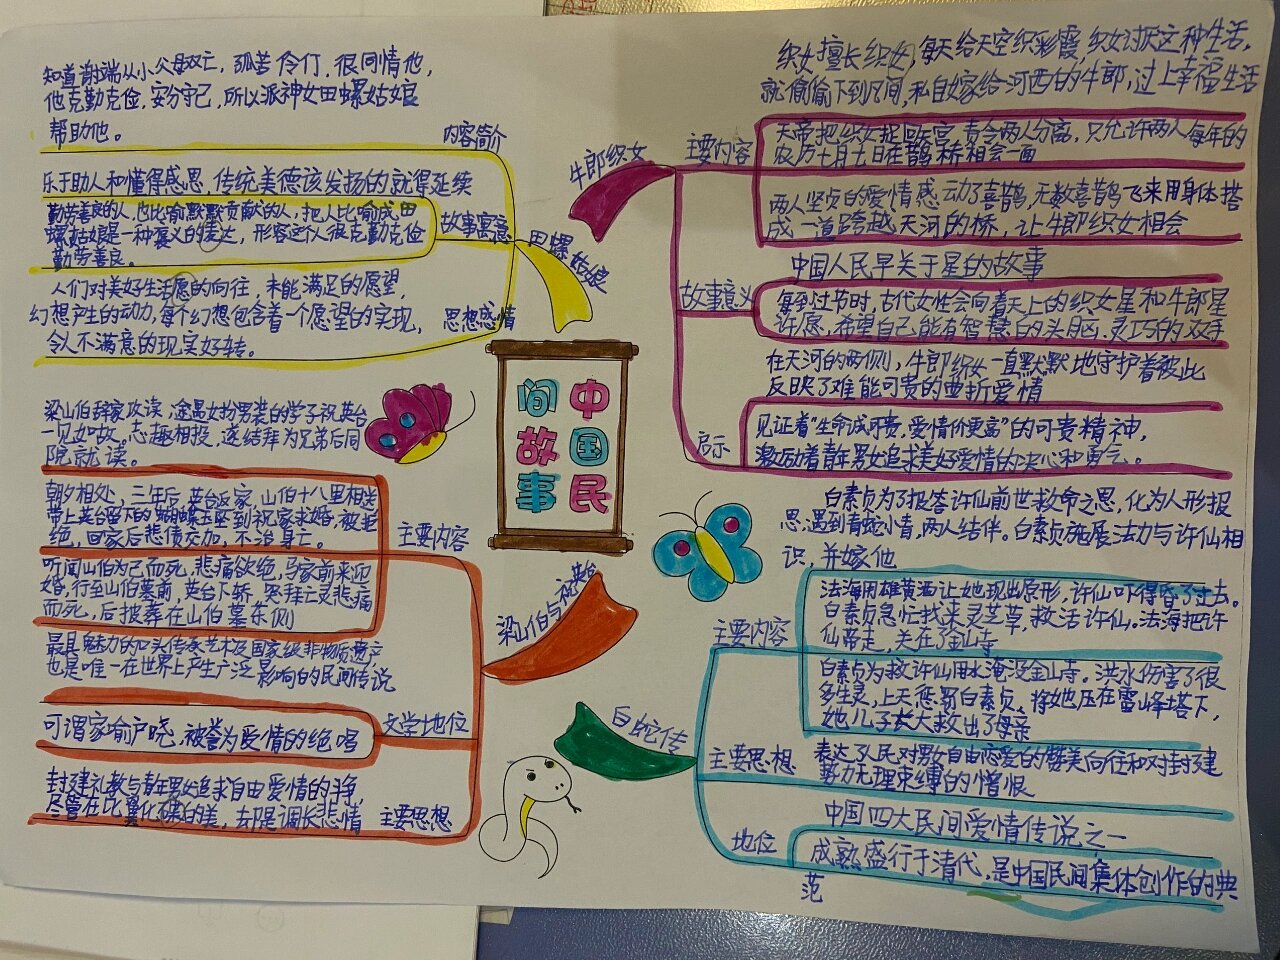 中国民
间故事
田螺姑娘
内容简介
知道谢端从小父母双亡，孤苦伶仃，很同情他，
他克勤克俭，安分守己，所以派神女田螺姑娘
帮助他。
故事寓意
乐于助人和懂得感恩，传统美德该发扬的就得延续
勤劳善良的人，也比喻默默贡献的人，把人比喻成田
螺姑娘是一种褒义的表达，形容这人很克勤克俭
勤劳善良。
思想感情
人们对美好生活愿的向往，未能满足的愿望，
幻想产生的动力，每个幻想包含着一个愿望的实现，
令人不满意的现实好转。
牛郎织女
主要内容
织女擅长织女，每天给天空织彩霞，织女讨厌这种生活，
就偷偷下到凡间，私自嫁给河西的牛郎，过上幸福生活
天帝把织女捉回天宫，责令两人分离，只允许两人每年的
农历七月七日在鹊桥相会一面
两人坚贞的爱情感动了喜鹊，无数喜鹊飞来用身体搭
成一道跨越天河的桥，让牛郎织女相会
故事意义
中国人民早关于星的故事
每到过节时，古代女性会向着天上的织女星和牛郎星
许愿，希望自己能有智慧的头脑、灵巧的双手
在天河的两侧，牛郎织女一直默默地守护着彼此
反映了难能可贵的曲折爱情
启示
见证着“生命诚可贵，爱情价更高”的可贵精神，
激励着青年男女追求美好爱情的决心和勇气。
梁山伯与祝英台
主要内容
梁山伯辞家攻读，途遇女扮男装的学子祝英台
一见如故。志趣相投，遂结拜为兄弟后同
院就读。
朝夕相处，三年后，英台返家，山伯十八里相送
带上英台留下的蝴蝶玉坠到祝家求婚，被拒
绝，回家后悲愤交加，不治身亡。
听闻山伯为己而死，悲痛欲绝，马家前来迎
婚，行至山伯墓前，英台下轿，哭拜亡灵悲痛
而死，后披葬在山伯墓东侧
文学地位
最具魅力的口头传承艺术及国家级非物质遗产
也是唯一在世界上产生广泛影响的民间传说
可谓家喻户晓，被誉为爱情的绝唱
主要思想
封建礼教与青年男女追求自由爱情的争
尽管在比翼化碟的美，却是调长悲情
白蛇传
主要内容
白素贞为了报答许仙前世救命之恩，化为人形报
恩，遇到青蛇小情，两人结伴。白素贞施展法力与许仙相
识，并嫁他
法海用雄黄酒让她现出原形，许仙吓得昏了过去。
白素贞急忙找来灵芝草，救活许仙。法海把许
仙带走，关在了金山寺
白素贞为救许仙用水淹没金山寺。洪水伤害了很
多生灵，上天惩罚白素贞，将她压在雷峰塔下，
她儿子长大救出了母亲
主要思想
表达了人民对男女自由恋爱的赞美向往和对封建
势力无理束缚的憎恨
地位
中国四大民间爱情传说之一
成熟盛行于清代，是中国民间集体创作的典
范